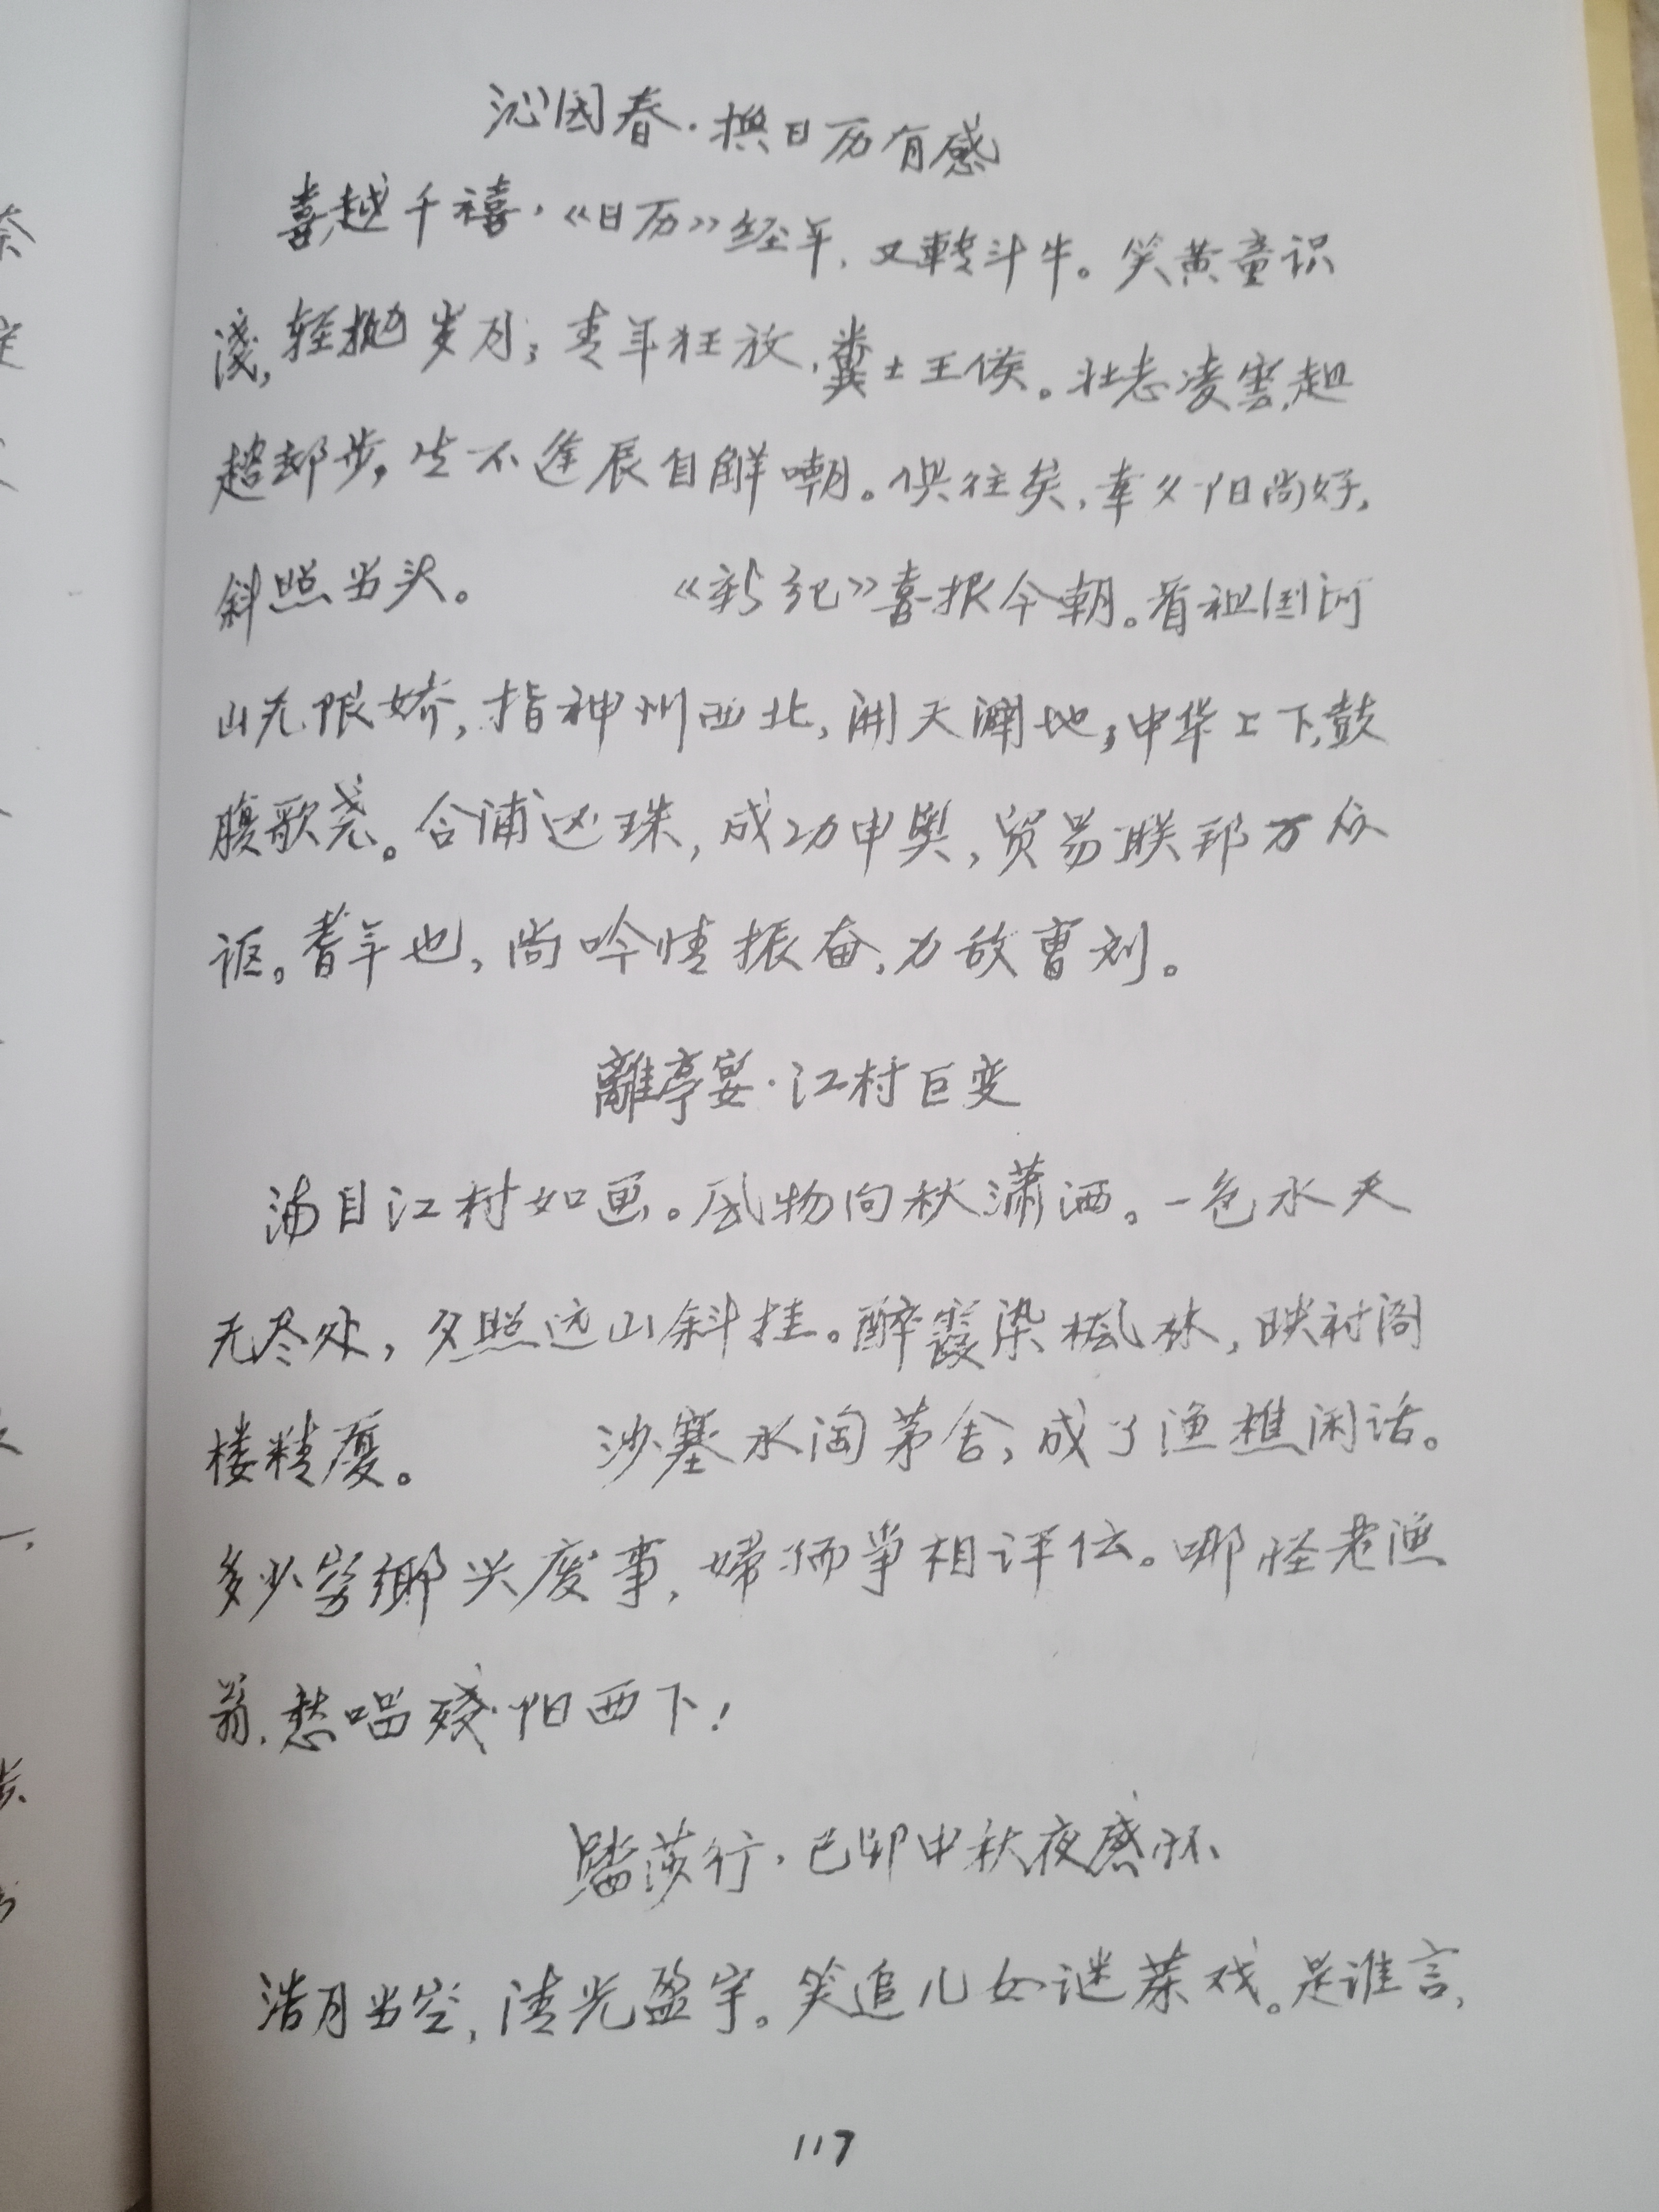 沁园春·换日历有感
喜越千禧,《日历》经年,又轉斗牛。笑黄童识
淺,轻抛岁月;青年狂放,粪土王侯。壮志凌雲,趄
趦却步,生不逢辰自解嘲。俱往矣,幸夕阳尚好,
斜照当头。 《新纪》喜报今朝。看祖国河
山无限娇,指神州西北,開天闢地;中华上下,鼓
腹歌尧。合浦还珠,成功申奥,贸易联邦万众
讴。耆年也,尚吟情振奋,力敌曹刘。
離亭宴·江村巨变
满目江村如画。风物向秋潇洒。一色水天
无尽处,夕照远山斜挂。醉霞染楓林,映衬阁
楼精厦。 沙塞水淘茅舍,成了渔樵闲话。
多少穷鄉兴废事,婦孺争相评估。哪怪老渔
翁,愁唱殘阳西下!
踏莎行·己卯中秋夜感怀
浩月当空,清光盈宇。笑追儿女谜茶戏。是谁言,
117